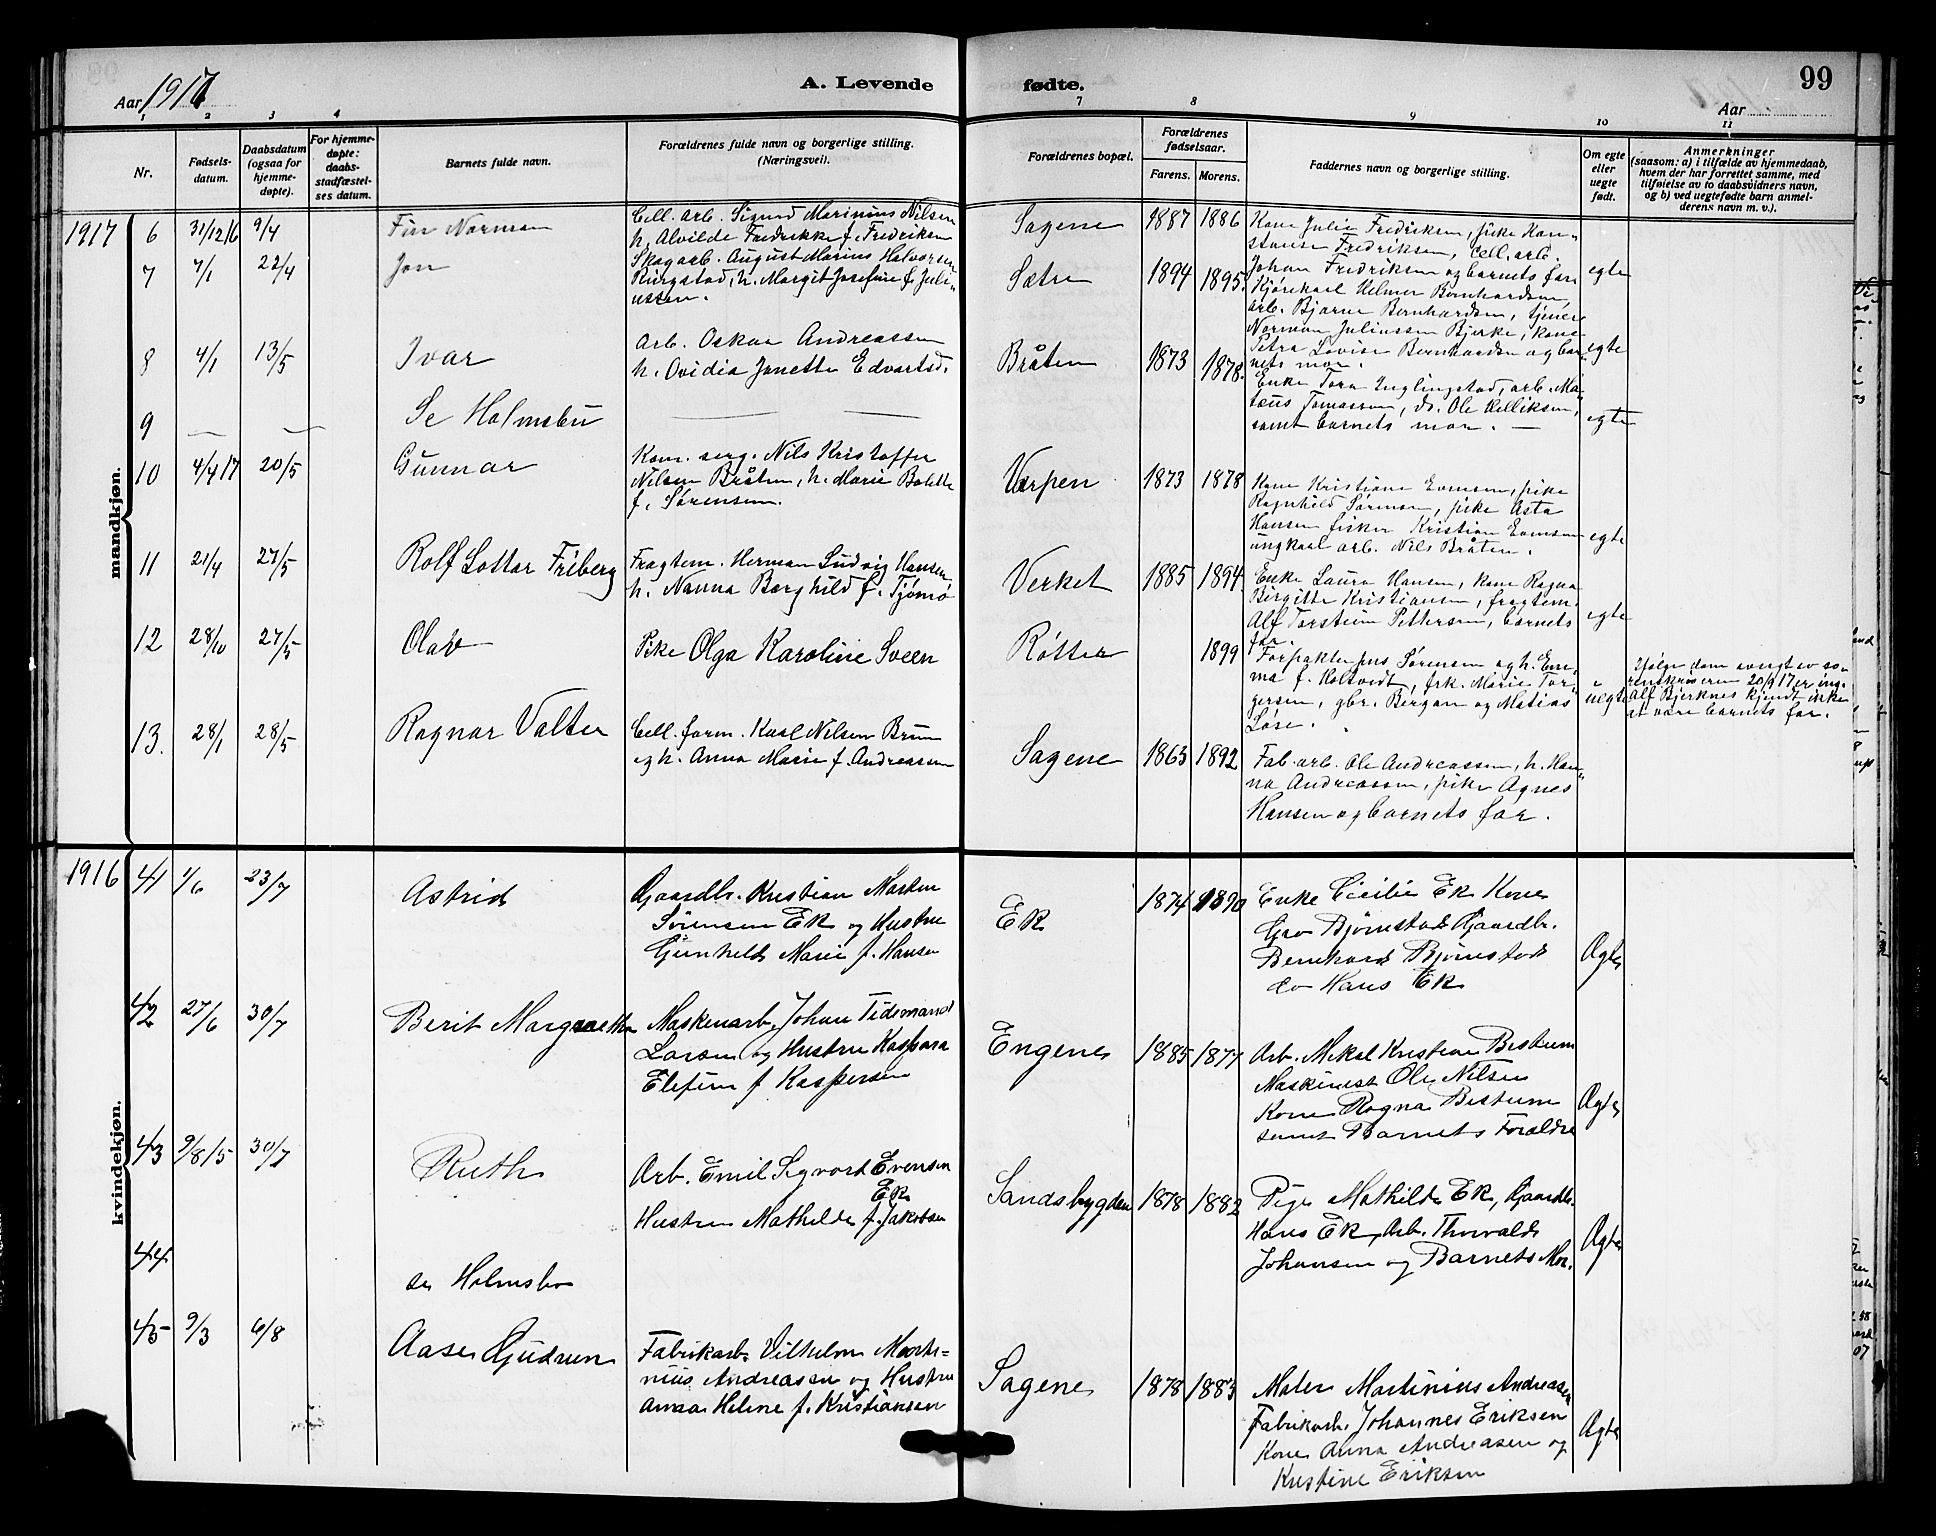 Aar 1917
A. Levende
fødte.
99
Aar
1 2 3 4
7 8 9 10 11
Nr.
Fødsels-
datum.
Daabsdatum
(ogsaa for
hjemme-
døpte).
For hjemme-
døpte:
daabs-
stadfæstel-
ses datum.
Barnets fulde navn.
Forældrenes fulde navn og borgerlige stilling.
(Næringsvei).
Forældrenes bopæl.
Forældrenes
fødselsaar.
Farens. Morens.
Faddernes navn og borgerlige stilling.
Om egte
eller
uegte
født.
Anmerkninger
(saasom: a) i tilfælde av hjemmedaab,
hvem der har forrettet samme, med
tilføielse av to daabsvidners navn,
og b) ved uegtefødte barn anmel-
derens navn m. v.).
mandkjøn.
1917 6 31/12 16 9/4
Finn Norman
Cell. arb. Sigurd Marinius Nilsen
h. Alvilde Fredrikke f. Fredriksen
Sagene 1887 1886
Kone Julie Fredriksen, pike Kon-
stanse Fredriksen, Cell. arb.
Johan Fredriksen og barnets far
egte
7 7/1 22/4
Jon
Skogarb. August Marius Halvorsen
Ringstad, h. Margit Josefine f. Juli-
ussen.
Sætre 1894 1895.
Kjørekarl Helmer Bernhardsen,
arb. Bjarne Bernhardsen, tjener
Norman Juliussen Bjerke, kone
Petra Lovise Bernhardsen og bar-
nets mor.
egte
8 4/1 13/5
Ivar
Arb. Oskar Andreassen
h. Ovidia Janette Edvartsd.
Bråten 1873 1878.
Enke Tora Inglingstad, arb. Ma-
teus Tomassen, do. Ole Kelliksen,
samt barnets mor. —
egte
9 — —
Se Holmsbu — —
10 4/4 17 20/5
Gunnar
Kom. serg. Nils Kristoffer
Nilsen Bråten, h. Marie Bolette
f. Sørensen.
Verpen 1873 1878
Kone Kristiane Evensen, pike
Ragnhild Sørensen, pike Asta
Hansen fisker Kristian Evensen
ungkarl arb. Nils Bråten.
egte
11 21/4 27/5
Rolf Lottar Friberg
Fragtem. Herman Ludvig Hansen,
h. Nanna Borghild f. Tjømø
Verket 1885 1894.
Enke Laura Hansen, kone Ragna
Birgitte Kristiansen, fragtem.
Alf Torstein Pettersen, barnets
far.
egte
12 28/10 27/5
Olav
Pike Olga Karoline Sveen
Røtter 1899
Forpakter Jens Sørensen og h. Em-
ma f. Holtvedt, frk. Marie Tor-
gersen, gbr. Bergan og Matias
Lose.
uegte
Ifølge dom avsagt av so-
renskriveren 20/9 17 er ing.
Alf Bjerknes kjendt ikke
at være barnets far.
13. 28/1 28/5
Ragnar Valter
Cell. form. Karl Nilsen Bruun
og h. Anna Marie f. Andreassen
Sagene 1863 1892
Fab. arb. Ole Andreassen, h. Han-
na Andreassen, pike Agnes
Hansen og barnets far.
kvindekjøn.
1916 41 1/6 23/7
Astrid
Gaardbr. Kristian Morten
Sørensen Ek og Hustru
Gunhild Marie f. Hansen
Ek 1874 1890
Enke Cecilie Ek Kone
Gro Bjørnstad Gaardbr.
Bernhard Bjørnstad
do Hans Ek
Ægte
42 27/6 30/7
Berit Margrethe
Maskinarb. Johan Tidemand
Larsen og Hustru Kaspara
Elefine f Kaspersen
Engene 1885 1877
Arb. Mikal Kristian Bestum
Maskinist Ole Nilsen
Kone Ragna Bestum
samt Barnets Forældre
Ægte
43 9/8 15 30/7
Ruth
Arb. Emil Sigvart Evensen
Ek
Hustru Mathilde f. Jakobsen
Sandsbygden 1878 1882
Pige Mathilde Ek, Gaardbr.
Hans Ek, Arb. Thorvald
Johansen og Barnets Mor.
Ægte
44
se Holmsbo
45 9/3 6/8
Aase Gudrun
Fabrikarb. Vilhelm Marti-
nius Andreasen og Hustru
Anna Heline f. Kristiansen
Sagene 1878 1883
Maler Martinius Andreasen
Fabrikarb. Johannes Eriksen
Kone Anna Andreasen og
Kristine Eriksen
Ægte